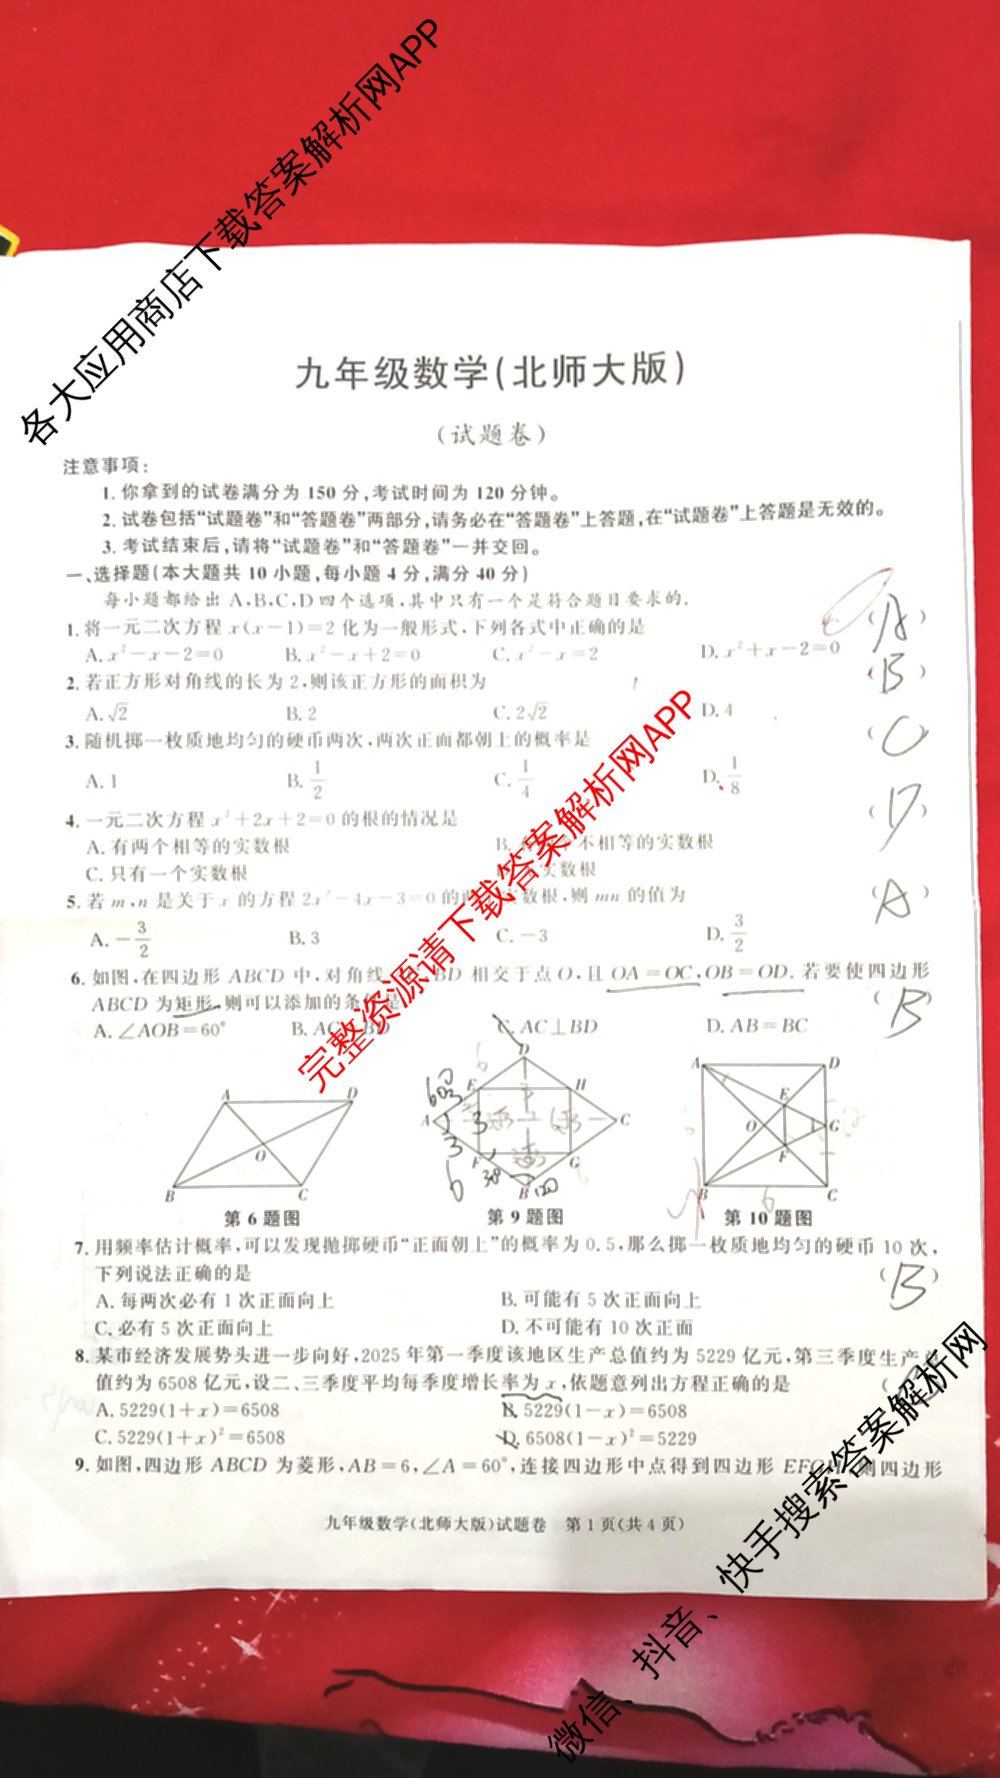 各大应用商店下载答案解析网APP
九年级数学(北师大版)
(试题卷)
注意事项:
1. 你拿到的试卷满分为 150 分,考试时间为 120 分钟。
2. 试卷包括“试题卷”和“答题卷”两部分,请务必在“答题卷”上答题,在“试题卷”上答题是无效的。
3. 考试结束后,请将“试题卷”和“答题卷”一并交回。
一、选择题(本大题共 10 小题,每小题 4 分,满分 40 分)
每小题都给出 A,B,C,D 四个选项,其中只有一个是符合题目要求的.
1. 将一元二次方程 x(x−1)=2 化为一般形式,下列各式中正确的是 (A)
A. x²−x−2=0 B. x²−x+2=0 C. x²−x=2 D. x²+x−2=0
2. 若正方形对角线的长为 2,则该正方形的面积为 (B)
A. √2 B. 2 C. 2√2 D. 4
3. 随机掷一枚质地均匀的硬币两次,两次正面都朝上的概率是 (C)
A. 1 B. 1/2 C. 1/4 D. 1/8
4. 一元二次方程 x²+2x+2=0 的根的情况是 (D)
A. 有两个相等的实数根 B. 不相等的实数根
C. 只有一个实数根 实数根
5. 若 m,n 是关于 x 的方程 2x²−4x−3=0 的 实数根,则 mn 的值为 (A)
A. −3/2 B. 3 C. −3 D. 3/2
6. 如图,在四边形 ABCD 中,对角线 BD 相交于点 O,且 OA=OC,OB=OD. 若要使四边形
ABCD 为矩形,则可以添加的条 是 (B)
A. ∠AOB=60° B. AC BD C. AC⊥BD D. AB=BC
A D O B C
第 6 题图
D E H A C F G B
60 3 3 6 30 120
第 9 题图
A D E O G F B C
6
第 10 题图
7. 用频率估计概率,可以发现抛掷硬币“正面朝上”的概率为 0.5,那么掷一枚质地均匀的硬币 10 次,
下列说法正确的是 (B)
A. 每两次必有 1 次正面向上 B. 可能有 5 次正面向上
C. 必有 5 次正面向上 D. 不可能有 10 次正面
8. 某市经济发展势头进一步向好,2025 年第一季度该地区生产总值约为 5229 亿元,第三季度生产
值约为 6508 亿元,设二、三季度平均每季度增长率为 x,依题意列出方程正确的是 (
A. 5229(1+x)=6508 B. 5229(1−x)=6508
C. 5229(1+x)²=6508 D. 6508(1−x)²=5229
9. 如图,四边形 ABCD 为菱形,AB=6,∠A=60°,连接四边形中点得到四边形 EFGH,则四边形
九年级数学(北师大版)试题卷 第 1 页(共 4 页)
完整资源请下载答案解析网APP
微信、抖音、快手搜索答案解析网